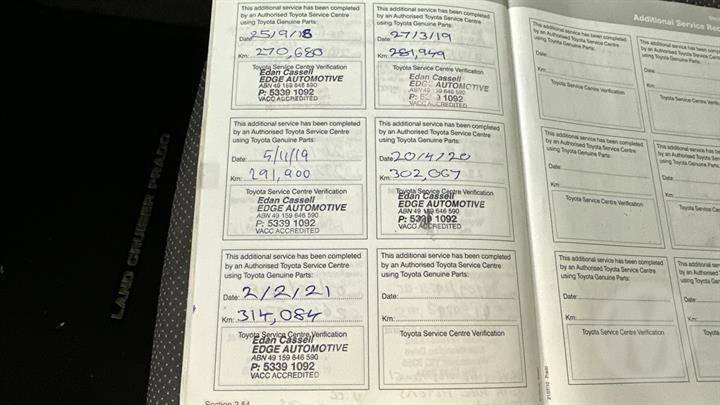 This additional service has been completed
by an Authorised Toyota Service Centre
using Toyota Genuine Parts:
Date: 25/9/18
Km: 270,680
Toyota Service Centre Verification
Edan Cassell
EDGE AUTOMOTIVE
ABN 49 159 646 590
P: 5339 1092
VACC ACCREDITED
This additional service has been completed
by an Authorised Toyota Service Centre
using Toyota Genuine Parts:
Date: 27/3/19
Km: 281,949
Toyota Service Centre Verification
Edan Cassell
EDGE AUTOMOTIVE
ABN 49 159 646 590
P: 5339 1092
VACC ACCREDITED
This additional service has been completed
by an Authorised Toyota Service Centre
using Toyota Genuine Parts:
Date: 5/11/19
Km: 291,900
Toyota Service Centre Verification
Edan Cassell
EDGE AUTOMOTIVE
ABN 49 159 646 590
P: 5339 1092
VACC ACCREDITED
This additional service has been completed
by an Authorised Toyota Service Centre
using Toyota Genuine Parts:
Date: 20/4/20
Km: 302,067
Toyota Service Centre Verification
Edan Cassell
EDGE AUTOMOTIVE
ABN 49 159 646 590
P: 5339 1092
VACC ACCREDITED
This additional service has been completed
by an Authorised Toyota Service Centre
using Toyota Genuine Parts:
Date: 2/2/21
Km: 314,084
Toyota Service Centre Verification
Edan Cassell
EDGE AUTOMOTIVE
ABN 49 159 646 590
P: 5339 1092
VACC ACCREDITED
This additional service has been completed
by an Authorised Toyota Service Centre
using Toyota Genuine Parts:
Date:
Km:
Toyota Service Centre Verification
Section 2.54
LAND CRUISER PRADO
Additional Service Rec
This additional service has been completed
by an Authorised Toyota Service Centre
using Toyota Genuine Parts:
Date:
Km:
Toyota Service Centre Verification
This additional service has been comp
by an Authorised Toyota Service
using Toyota Genuine Parts:
Date:
Km:
Toyota Service Centre Verif
This additional service has been completed
by an Authorised Toyota Service Centre
using Toyota Genuine Parts:
Date:
Km:
Toyota Service Centre Verification
This additional service has be
by an Authorised Toyota Ser
using Toyota Genuine Parts:
Date:
Km:
Toyota Service Cen
This additional service has been completed
by an Authorised Toyota Service Centre
using Toyota Genuine Parts:
Date:
Km:
Toyota Service Centre Verification
This additional ser
by an Authorised
using Toyota Gen
Date:
Km:
Toyota